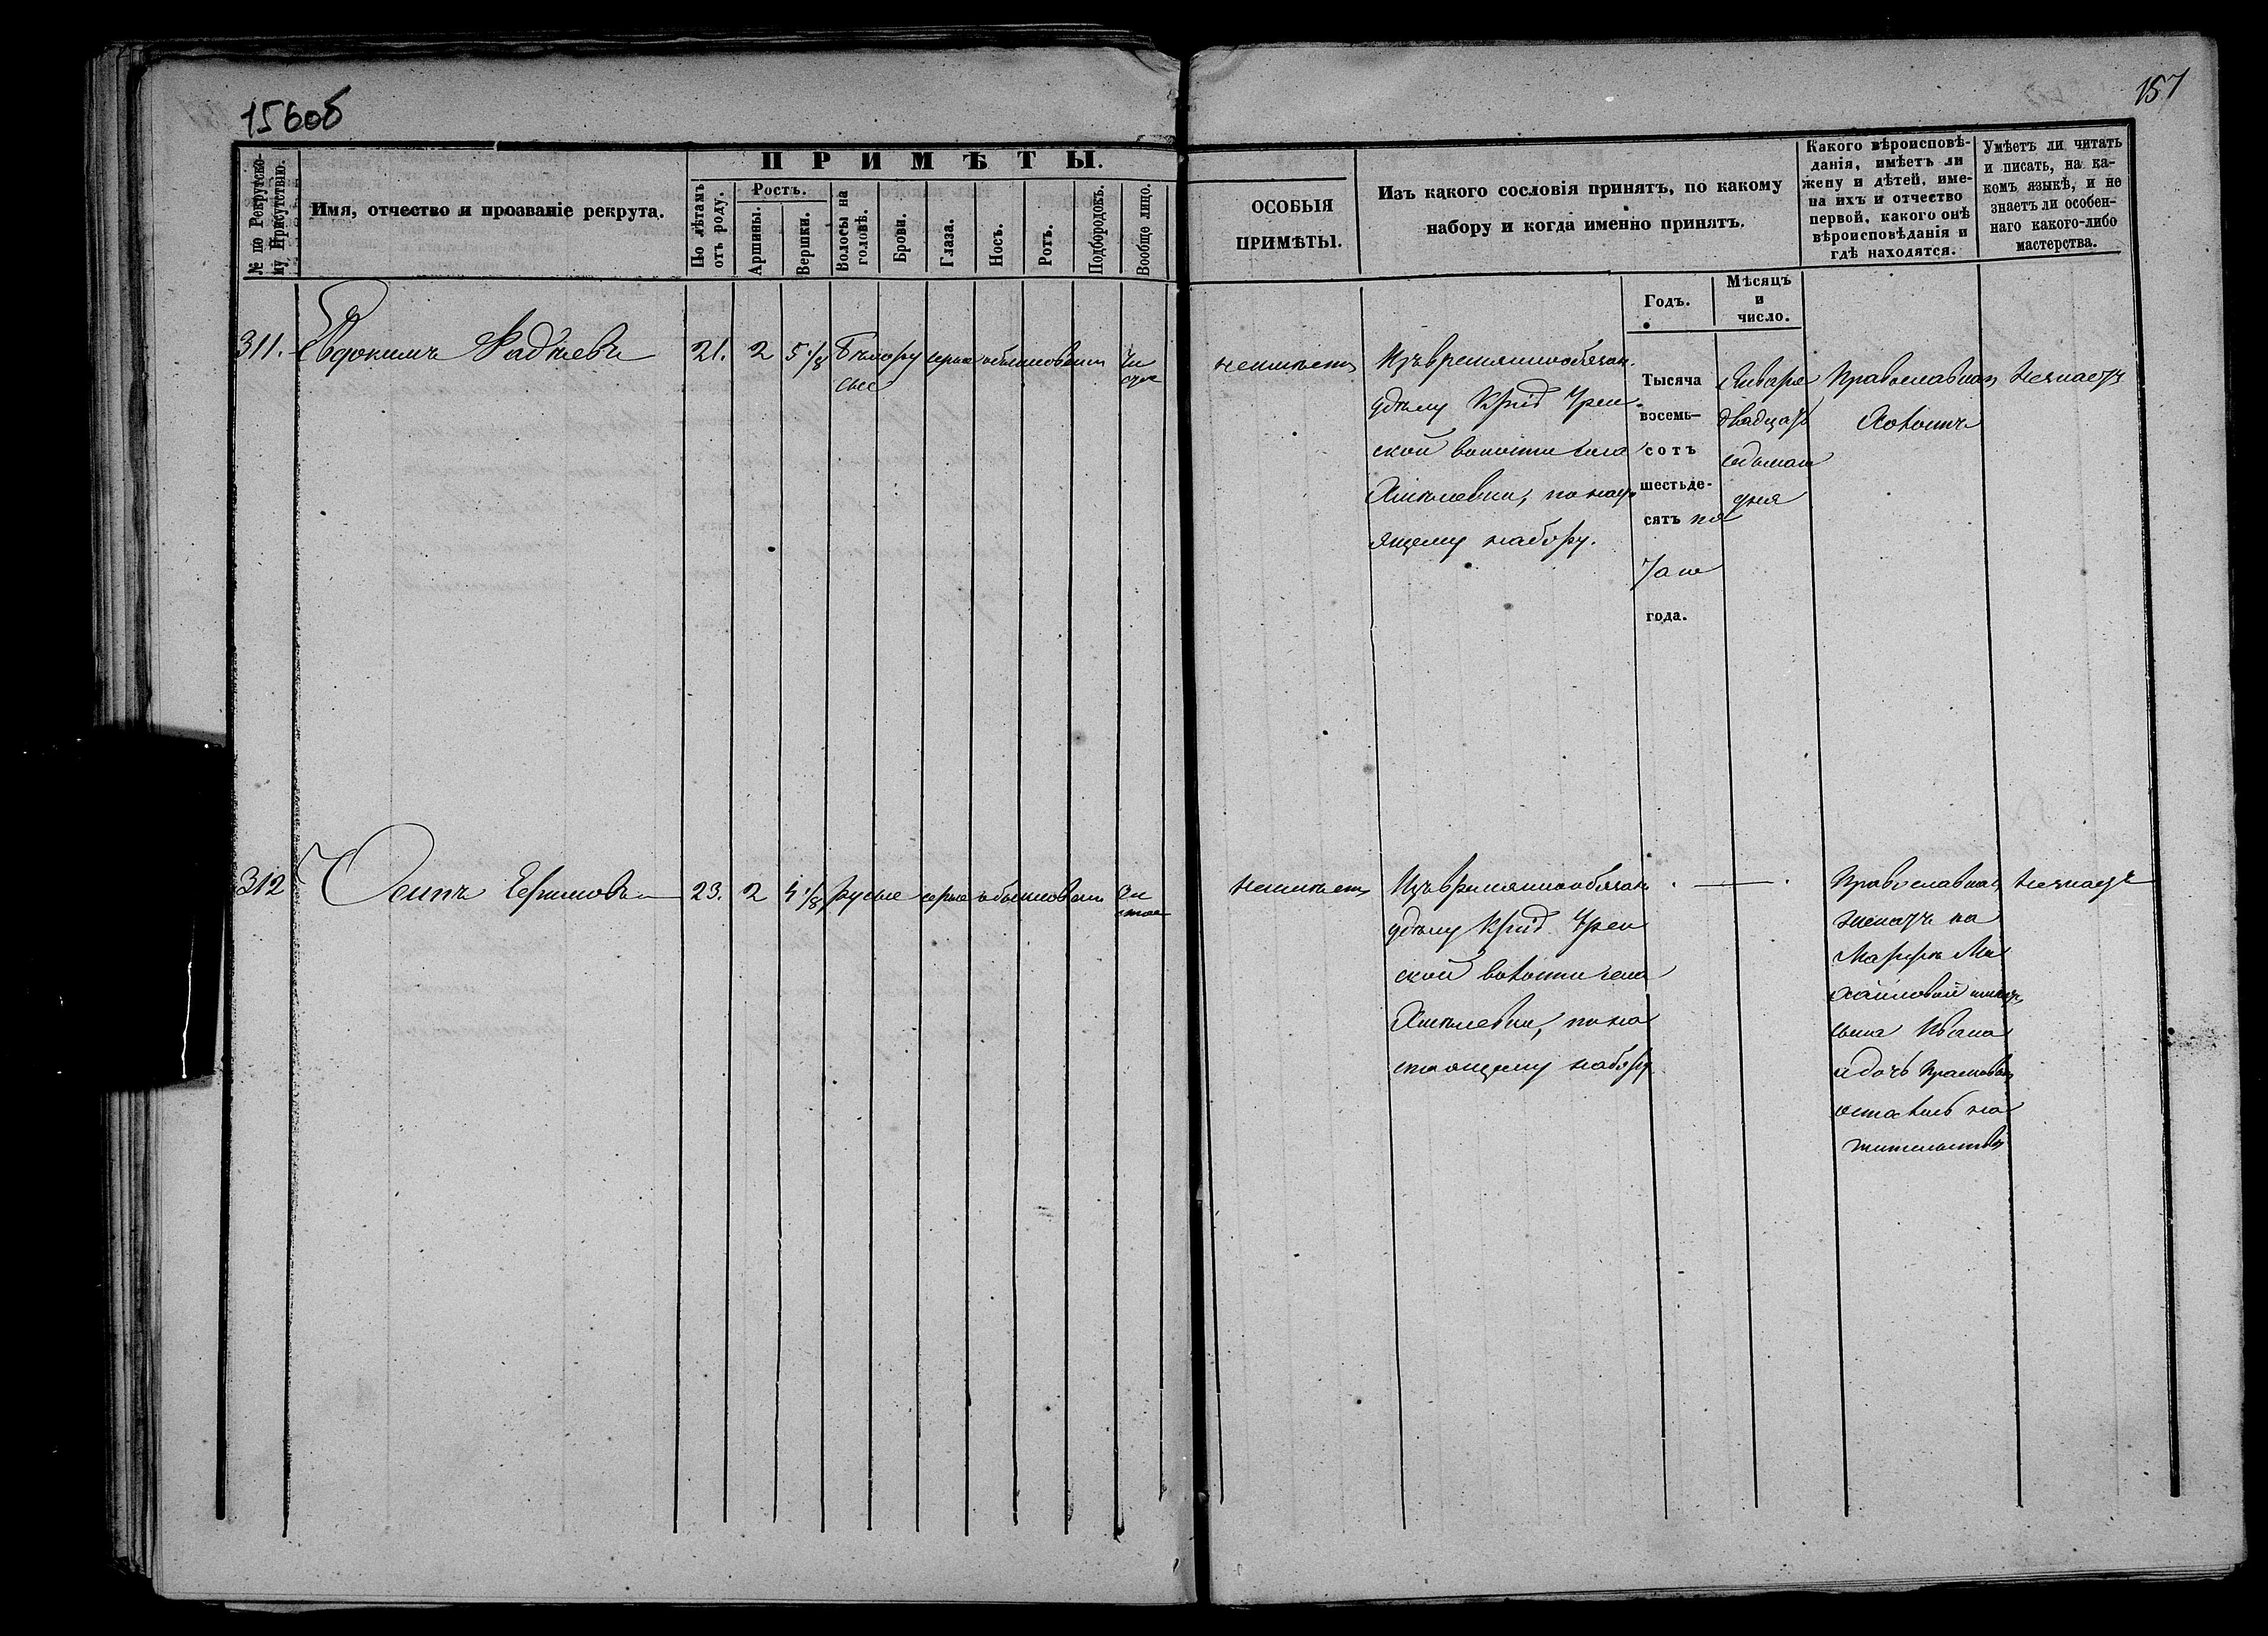 156об
157
№ по Рекрутско-
му Присутствію.
Имя, отчество и прозваніе рекрута.
ПРИМѢТЫ.
По лѣтамъ
отъ роду.
Ростъ.
Аршины.
Вершки.
Волосы на
головѣ.
Брови.
Глаза.
Носъ.
Ротъ.
Подбородокъ.
Вообще лицо.
ОСОБЫЯ
ПРИМѢТЫ.
Изъ какого сословія принятъ, по какому
набору и когда именно принятъ.
Какого вѣроисповѣ-
данія, имѣетъ ли
жену и дѣтей, име-
на ихъ и отчество
первой, какого онѣ
вѣроисповѣданія и
гдѣ находятся.
Умѣетъ ли читать
и писать, на ка-
комъ языкѣ, и не
знаетъ ли особен-
наго какого-либо
мастерства.
Годъ.
Мѣсяцъ
и
число.
311. Евдокимъ 21. 2 5 1/8 Бѣлору серые обыкновен чи
сые стое
неимѣетъ
Изъ временнообязан.
удѣлу
ской волости села
по наст
ящему набору.
Тысяча
восемь-
сотъ
шестьде-
сятъ пя
таго
года.
Января
двадцать
седьмаго
дня
Православнаго
Холостъ
Незнаетъ
312 Осипъ 23. 2 4 1/8 русые серые обыкновен чи
стое
неимѣетъ
Изъ временнообязан
удѣлу
ской волости села
по на
стоящему набору
Православнаго
женатъ на
Марфѣ Ми
хайловой имѣетъ
сына Ивана
и дочь
остались на
жительствѣ
Незнаетъ